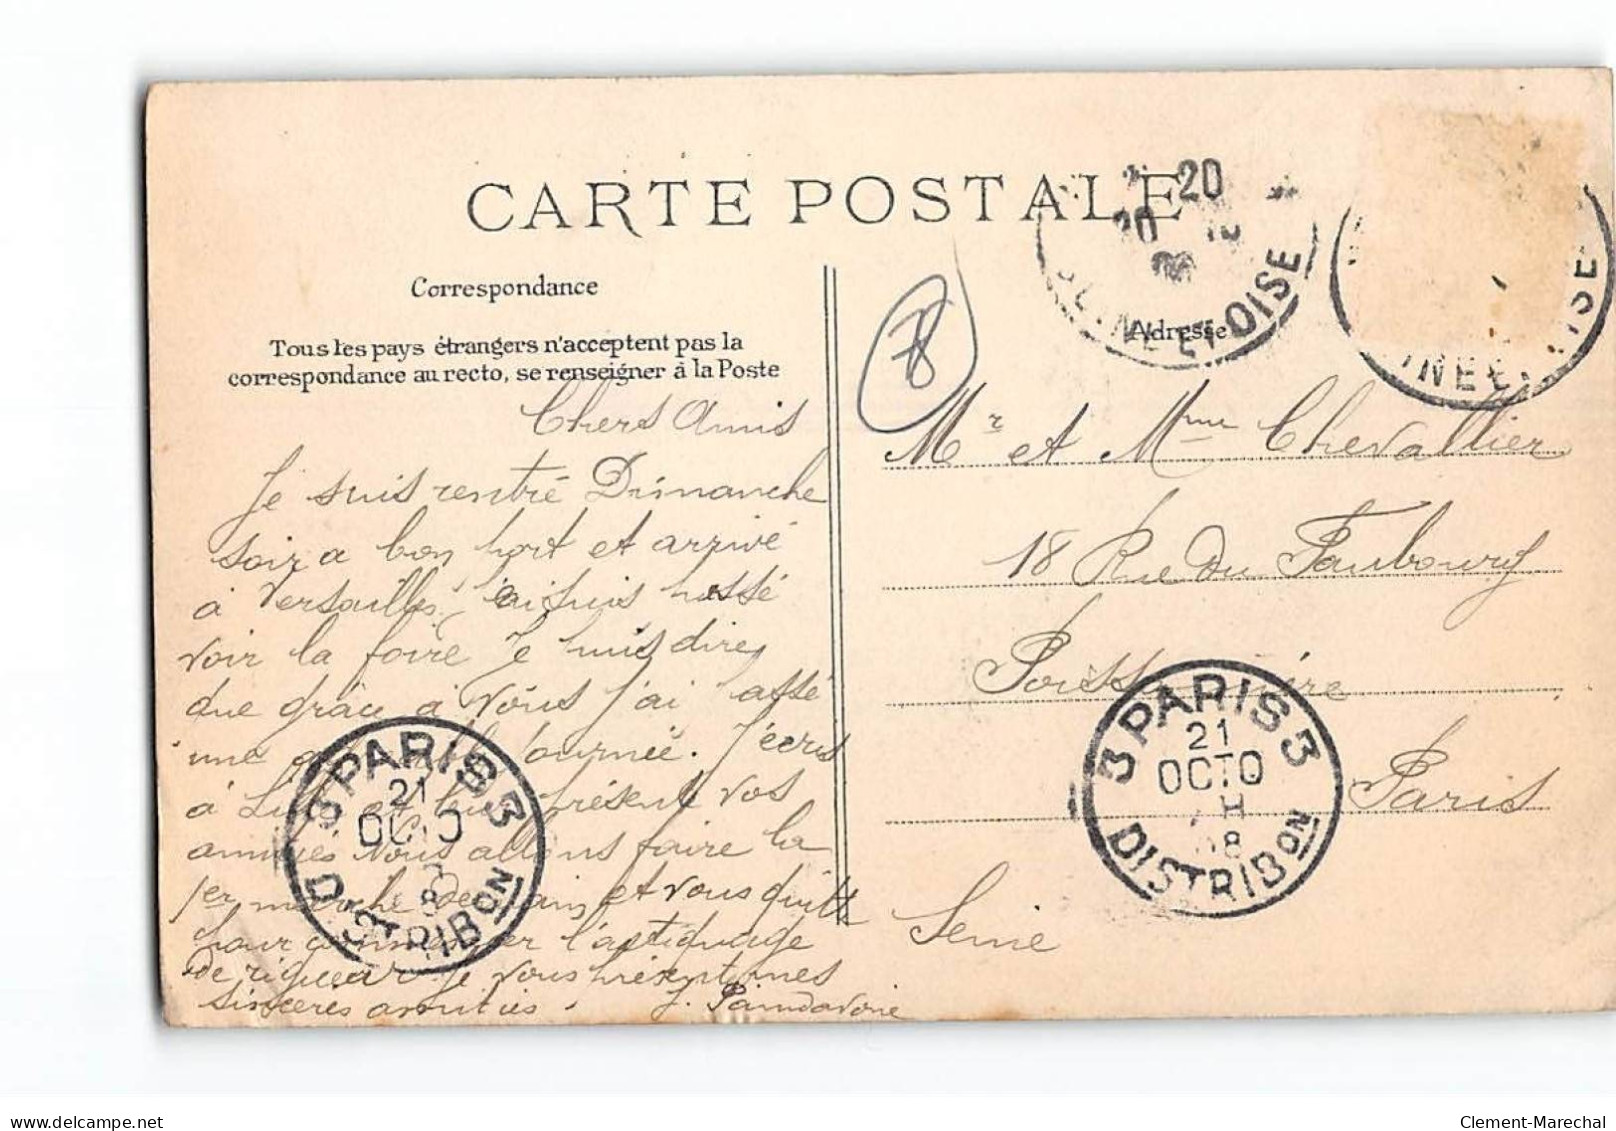 CARTE POSTALE
Correspondance
Tous les pays étrangers n'acceptent pas la
correspondance au recto, se renseigner à la Poste
Adresse
20
20
SEINE ET OISE
78
Chers Amis
Je suis rentré Dimanche
soir a bon port et arrivé
à Versailles
voir la foire Je puis dire
que grâce à vous j'ai passé
une tournée. J'écris
à présente vos
amitiés Nous allons faire la
1er marche Demain et vous quitte
pour l'astiquage
De rigueur. Je vous présent mes
sincères amitiés. J. Paindavoine
Mr et Mme Chevallier
18 Rue du Faubourg
Poissonnière
Paris
Seine
3 PARIS 3
21
OCTO
8
DISTRIBON
3 PARIS 3
21
OCTO
H
08
DISTRIBON
Clement-Marechal